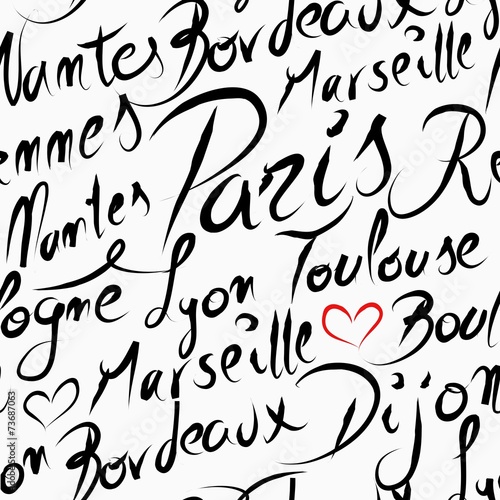 Nantes Bordeaux Lyon
Marseille
ennes Paris Re
Nantes
logne Lyon Toulouse
Marseille Boul
on Bordeaux Dijon
Ly
Adobe Stock | #73687063